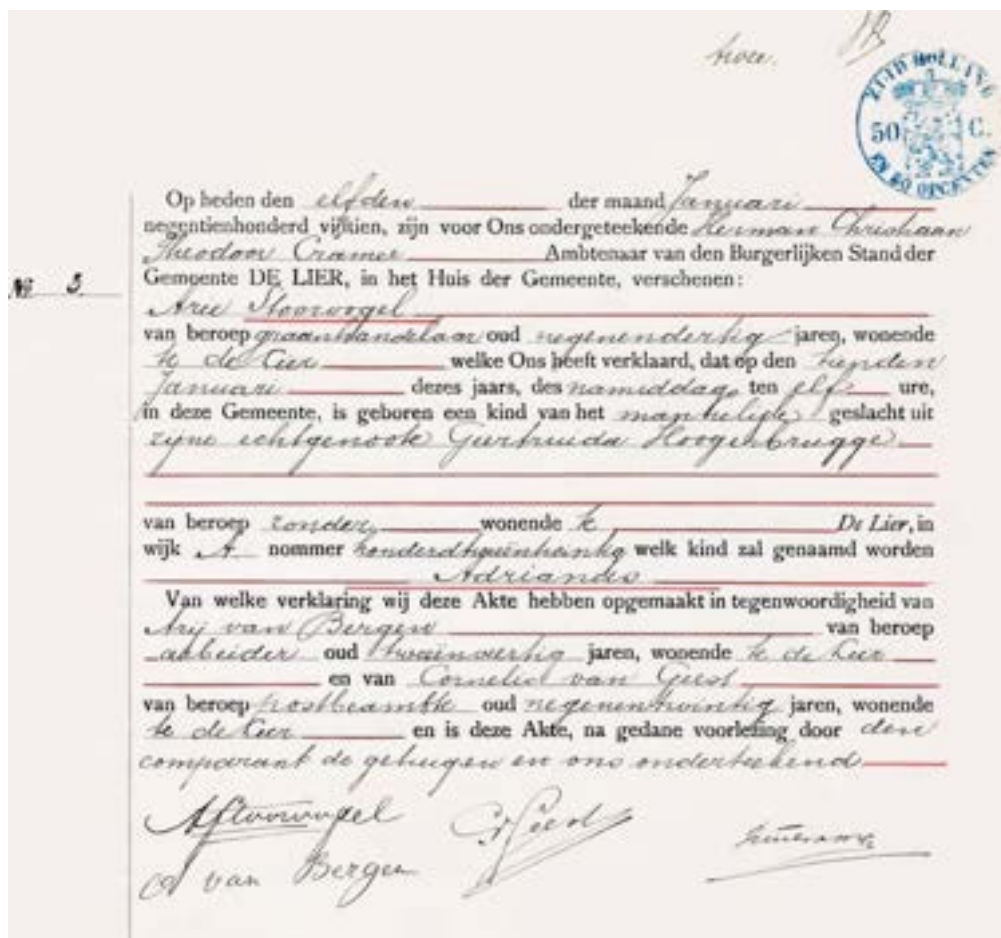 twee.
ZUID HOLLAND
50 C.
EN 60 OPCENTEN
Op heden den elfden der maand Januari
negentienhonderd vijftien, zijn voor Ons ondergeteekende Herman Christiaan
Theodoor Cramer Ambtenaar van den Burgerlijken Stand der
Gemeente DE LIER, in het Huis der Gemeente, verschenen:
No 3
Arie Stoorvogel
van beroep graanhandelaar oud negenendertig jaren, wonende
te de Lier welke Ons heeft verklaard, dat op den tienden
Januari dezes jaars, des namiddags ten elf ure,
in deze Gemeente, is geboren een kind van het mannelijk geslacht uit
zijne echtgenoote Geertruida Hoogenbrugge
van beroep zonder wonende te De Lier, in
wijk A nommer welk kind zal genaamd worden
Adrianus
Van welke verklaring wij deze Akte hebben opgemaakt in tegenwoordigheid van
Arij van Bergen van beroep
arbeider oud tweeenveertig jaren, wonende te de Lier
en van Cornelis van Geest
van beroep postbeambte oud negenentwintig jaren, wonende
te de Lier en is deze Akte, na gedane voorlezing door den
comparant de getuigen en ons onderteekend
AStoorvogel CvGeest
A van Bergen